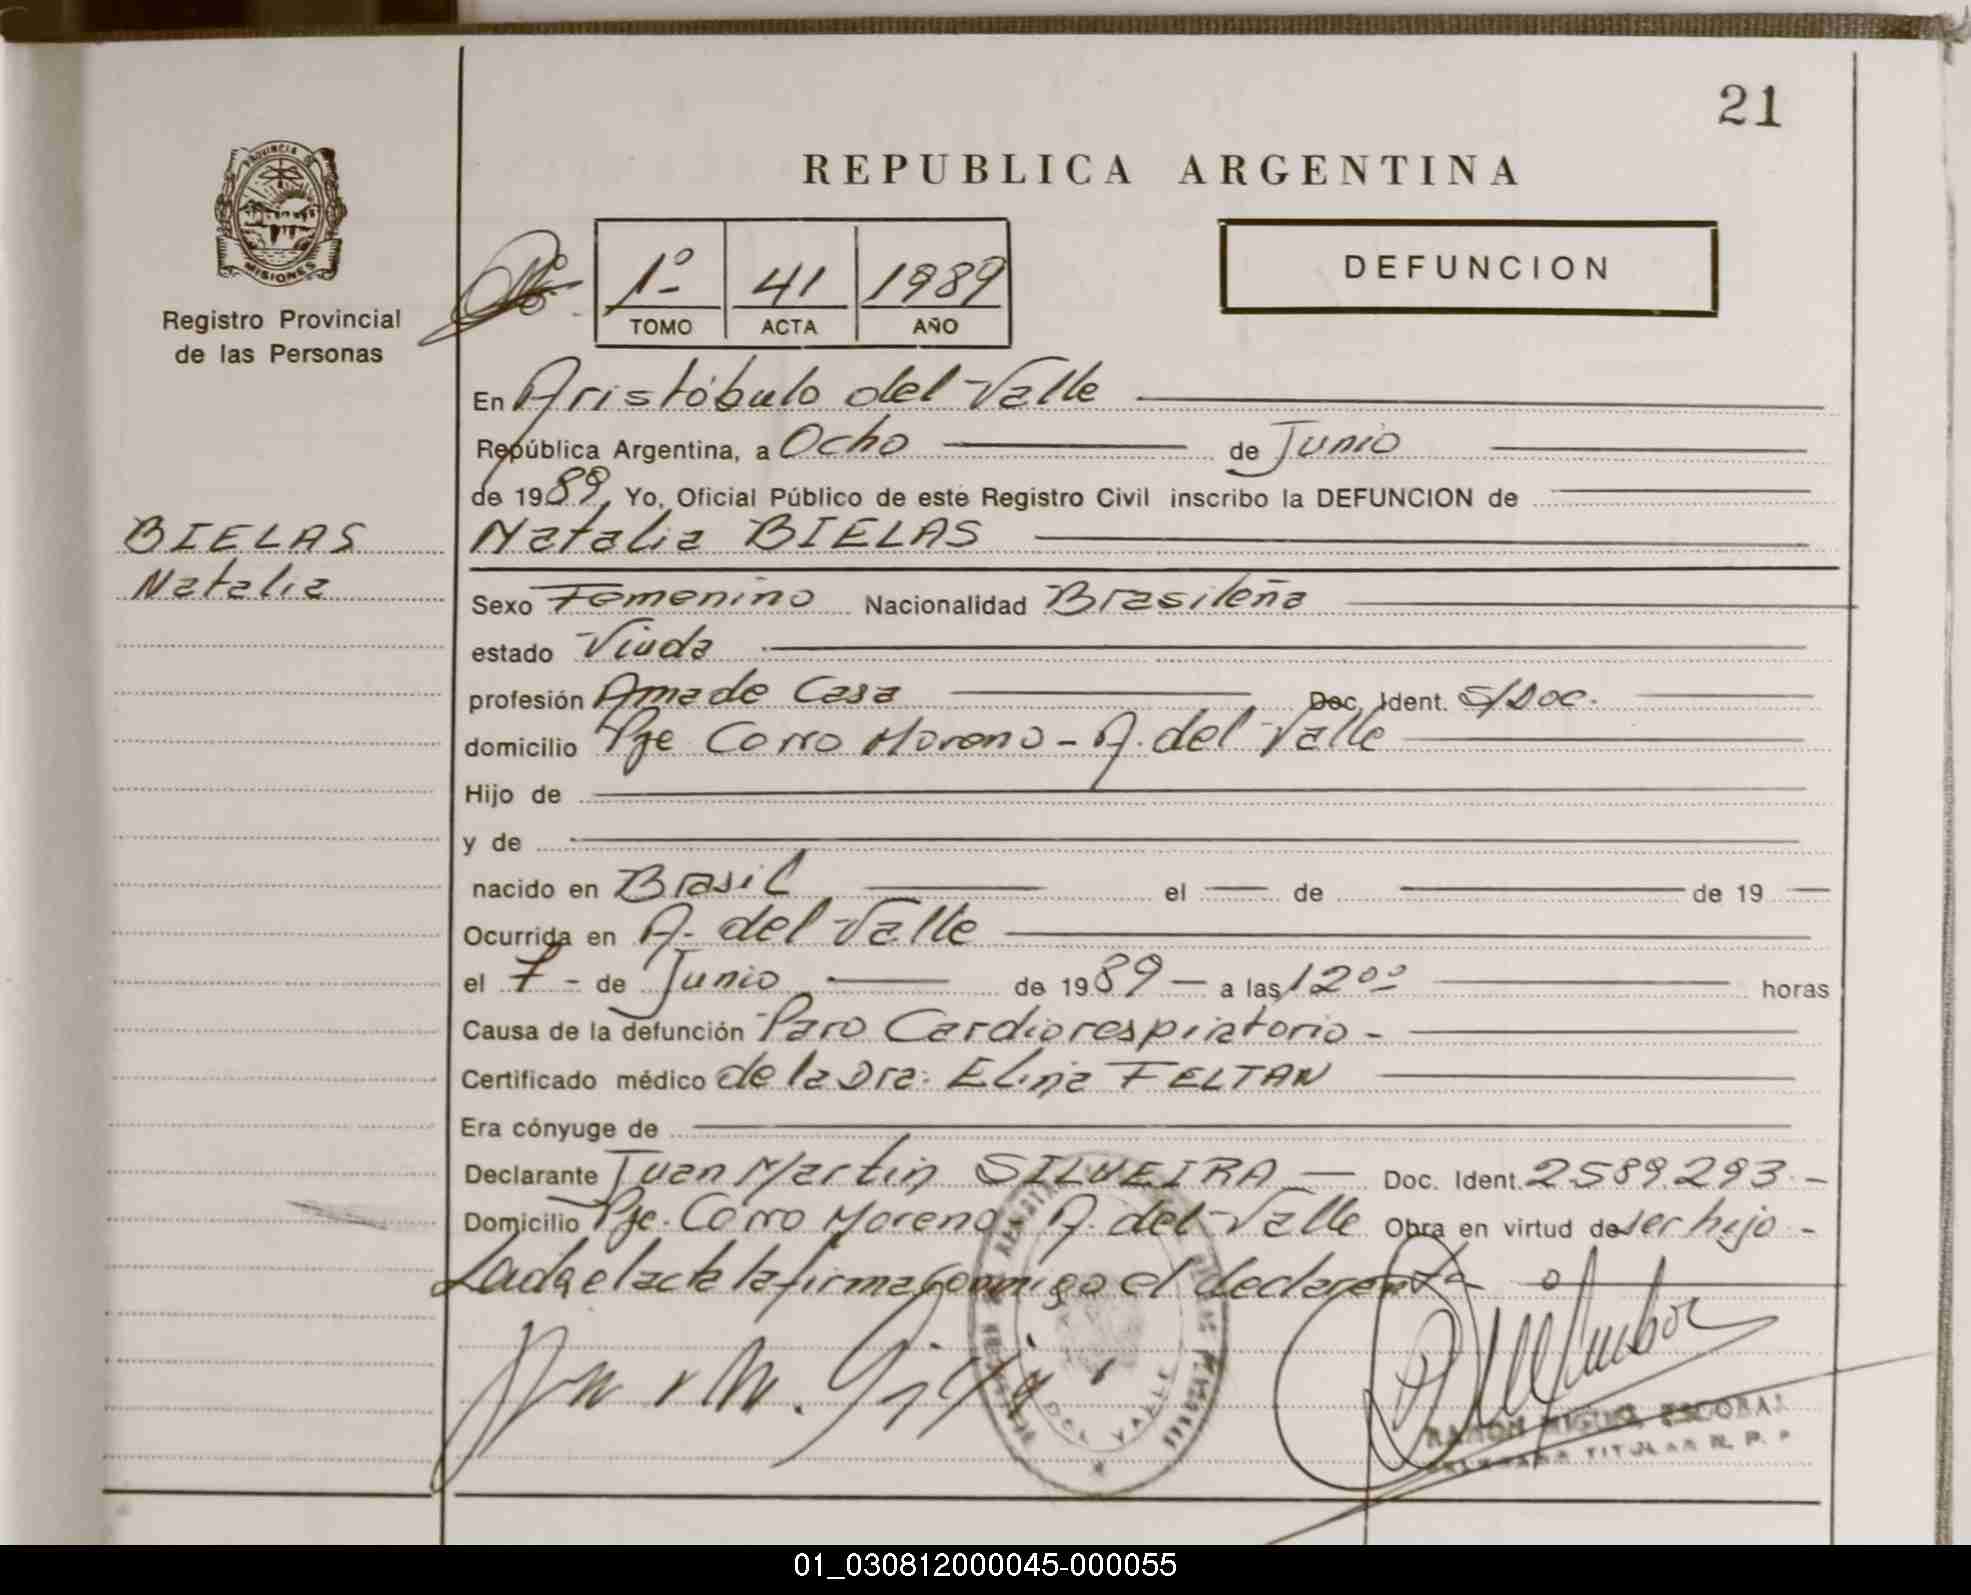 21
PROVINCIA DE
MISIONES
Registro Provincial
de las Personas
REPUBLICA ARGENTINA
1º 41 1989
TOMO ACTA AÑO
DEFUNCION
En Aristóbulo del Valle
República Argentina, a Ocho de Junio
de 1989, Yo, Oficial Público de este Registro Civil inscribo la DEFUNCION de
BIELAS
Natalia
Natalia BIELAS
Sexo Femenino Nacionalidad Brasileña
estado Viuda
profesión Ama de Casa Doc. Ident. S/Doc.
domicilio Pje Corro Moreno - A. del Valle
Hijo de
y de
nacido en Brasil el de de 19
Ocurrida en A. del Valle
el 7 - de Junio de 1989 a las 12 00 horas
Causa de la defunción Paro Cardiorespiratorio -
Certificado médico de la Dra. Elina FELTAN
Era cónyuge de
Declarante Juan Martin SILVEIRA Doc. Ident. 2589.293 -
Domicilio Pje. Corro Moreno A. del Valle Obra en virtud de ser hijo -
Leida el acta la firma conmigo el declarante
DEL VALLE
RAMON MIGUEL ESCOBAR
TITULAR R. P. P
01_030812000045-000055